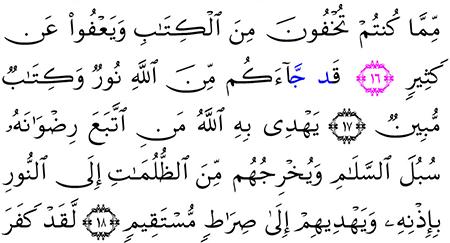 مِّمَّا كُنتُمْ تُخْفُونَ مِنَ ٱلْكِتَٰبِ وَيَعْفُوا۟ عَن
كَثِيرٍ ١٦ قَد جَّآءَكُم مِّنَ ٱللَّهِ نُورٌ وَكِتَٰبٌ
مُّبِينٌ ١٧ يَهْدِى بِهِ ٱللَّهُ مَنِ ٱتَّبَعَ رِضْوَٰنَهُۥ
سُبُلَ ٱلسَّلَٰمِ وَيُخْرِجُهُم مِّنَ ٱلظُّلُمَٰتِ إِلَى ٱلنُّورِ
بِإِذْنِهِۦ وَيَهْدِيهِمْ إِلَىٰ صِرَٰطٍ مُّسْتَقِيمٍ ١٨ لَّقَدْ كَفَرَ